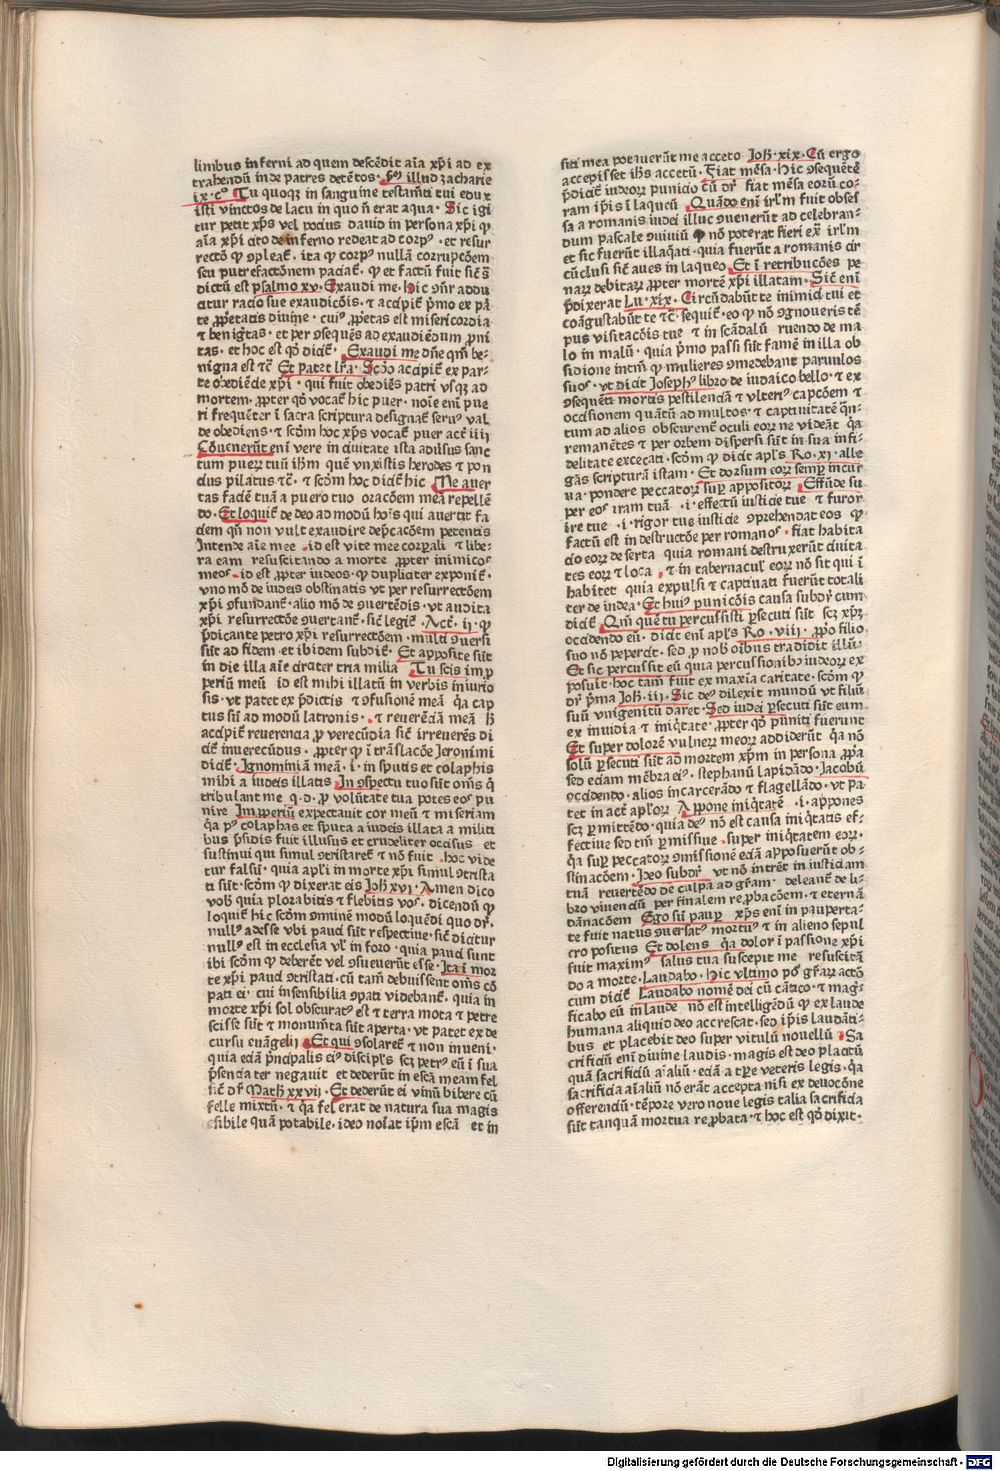 limbus inferni ad quem descēdit aīa xp̄i ad ex
trahendū inde patres detētos. illud zacharie
ix. cᵒ Tu quoqꝫ in sanguine testam̄ti tui edux
isti vinctos de lacu in quo n̄ erat aqua. Sic igi
tur petit xp̄s vel pocius dauid in persona xp̄i ꝙ
aīa xp̄i cito de inferno redeat ad corpꝰ. et resur
rectō ꝙ ꝯpleat̄. ita ꝙ corpꝰ nullā corrupcōem
seu putrefactōnem paciat̄. ꝙ et factū fuit sic̄
dictū est psalmo xv. Exaudi me. Hic ꝯn̄r addu
citur racio sue exaudicōis. ⁊ accipit̄ pͥmo ex pͣa
te ꝓpͥetatis diuine. cuiꝰ ꝓpͥetas est misericordia
⁊ benigͥtas. et per ꝯsequēs ad exaudiēdum ꝓni
tas. et hoc est qd̓ dicit̄. Exaudi me dn̄e qm̄ be⸗
nigna est ⁊c̄ Et patet lr̄a. Scd̓o accipit̄ ex par⸗
te obediēcie xp̄i. qui fuit obediēs patri vsqꝫ ad
mortem. ꝓpter qd̓ vocat̄ hic puer. noīe enī pue
ri frequēter ī sacra scriptura designat̄ seruꝰ val
de obediens. ⁊ scd̓m hoc xp̄s vocat̄ puer act̄ iiij
Cōuenerūt enī vere in ciuitate ista aduꝰsus sanc
tum pueꝝ tuū ih̄m quē vnxistis herodes ⁊ pon
cius pilatus ⁊c̄. ⁊ scd̓m hoc dicit̄ hic Ne auer
tas faciē tuā a puero tuo oracōem meā repellē
do. Et loquit̄ de deo ad modū hoīs qui auertit fa
ciem qn̄ non vult exaudire dep̄cacōem petentis
Intende aīe mee. id est vite mee corꝑali ⁊ libe⸗
ra eam resuscitando a morte ꝓpter inimicos
meos. id est ꝓpter iudeos. ꝙ dupliciter exponit̄.
vno mō de iudeis obstinatis vt per resurrectōem
xp̄i ꝯfundant̄. alio mō de ꝯuertēdis. vt audita
xp̄i resurrectōe ꝯuertant̄. sic̄ legit̄. Act̄. ij. ꝙ
p̄dicante petro xp̄i resurrectōem. multi ꝯuersi
sūt ad fidem. et ibidem subdit̄. Et apposite sūt
in die illa aīe circiter tria milia Tu scis imꝓ
periū meū id est mihi illatū in verbis iniurio
sis. vt patet ex p̄dictis ⁊ ꝯfusionē meā qͣa cap
tus sū ad modū latronis. ⁊ reuerēciā meā
accipit̄ reuerencia ꝓ verecūdia sic̄ irreuerēs di
cit̄ inuerecūdus. ꝓpter ꝙ ī trāslacōe Jeronimi
dicit̄. Ignominiā meā. i. in sputis et colaphis
mihi a iudeis illatis In ꝯspectu tuo sūt om̄s qͥ
tribulant me q. d. ꝓ volūtate tua potes eos pu
nire Imꝓperiū expectauit cor meū ⁊ miseriam
qͣa pꝰ colaphas et sputa a iudeis illata a militi
bus p̄sidis fuit illusus et crudeliter occisus et
sustinui qui simul ꝯtristaret̄ ⁊ nō fuit. hoc vide
tur falsū. quia apl̄i in morte xp̄i simul ꝯtrista
ti sūt. scd̓m ꝙ dixerat eis Joh̄ xvj. Amen dico
vob̓ quia plorabitis ⁊ flebitis vos. dicendū ꝙ
loquit̄ hic scd̓m ꝯmunē modū loquēdi quo dr̄.
nullꝰ adesse vbi pauci sūt respectiue. sic̄ dicitur
nullꝰ est in ecclesia vl̓ in foro. quia pauci sunt
ibi scd̓m ꝙ deberēt vel ꝯsueuerūt esse. Ita ī mor
te xp̄i pauci ꝯtristati. cū tam̄ debuissent om̄s cō
pati ei. cui insensibilia ꝯpati videbant̄. quia in
morte xp̄i sol obscuratꝰ est ⁊ terra mota ⁊ petre
scisse sūt ⁊ monum̄ta sūt aperta. vt patet ex de
cursu euāgelij Et qui ꝯsolaret̄ ⁊ non inueni.
quia eciā p̄ncipalis eiꝰ discipl̓s scꝫ petrꝰ eū ī sua
p̄sencia ter negauit et dederūt in escā meam fel
sic̄ dr̄ Math̄ xxvij. Et dederūt ei vinū bibere cū
felle mixtū. ⁊ qͣa fel erat de natura sua magis
cibile quā potabile. ideo noīat ip̄m escā et in
siti mea potauerūt me acceto Joh̄. xix. Cū ergo
accepisset ih̄s accetū. Fiat mēsa. Hic ꝯsequēter
p̄dicit̄ iudeoꝝ punicio cū dr̄ fiat mēsa eorū co⸗
ram ip̄is ī laqueū Quādo enī irl̄m fuit obses
sa a romanis iudei illuc ꝯuenerūt ad celebran⸗
dum pascale ꝯuiuiū nō poterat fieri ex̄ irl̄m
et sic fuerūt illaqͣati. quia fuerūt a romanis cir
cūclusi sic̄ aues in laqueo Et ī retribucōes pe
naꝝ debitaꝝ ꝓpter mortē xp̄i illatam. Sic̄ enī
p̄dixerat Lu. xix. Circūdabūt te inimici tui et
coāgustabūt te ⁊c̄. sequit̄. eo ꝙ nō ꝯgnoueris tē
pus visitacōis tue ⁊ in scādalū ruendo de ma
lo in malū. quia pͥmo passi sūt famē in illa ob
sidione intm̄ ꝙ mulieres ꝯmedebant paruulos
suos. vt dicit Josephꝰ libro de iudaico bello. ⁊ ex
ꝯsequēti mortis pestilenciā ⁊ vlteriꝰ capcōem ⁊
occisionem quātū ad multos. ⁊ captiuitatē qͣn⸗
tum ad alios obscurent̄ oculi eoꝝ ne videāt qͣa
remanētes ⁊ per orbem dispersi sūt in sua infi⸗
delitate excecati. scd̓m ꝙ dicit apl̓s Ro. xj. alle
gās scripturā istam. Et dorsum eoꝝ semꝑ incur
ua. pondere peccatoꝝ suꝑ appositoꝝ Effūde su
per eos iram tuā .i. effectū iusticie tue ⁊ furor
ire tue .i. rigor tue iusticie ꝯprehendat eos ꝙ
factū est in destructōe per romanos. fiat habita
cio eoꝝ deserta quia romani destruxerūt ciuita
tes eoꝝ ⁊ loca, ⁊ in tabernacul̓ eoꝝ nō sit qui ī
habitet quia expulsi ⁊ captiuati fuerūt totali
ter de iudea. Et huiꝰ punicōis causa subdr̄ cum
dicit̄ Qm̄ quē tu percussisti ꝑsecuti sūt scꝫ xp̄m
occidendo eū. dicit enī apl̓s Ro. viij. ꝓpͥo filio
suo nō pepercit. sed ꝓ nob̓ oībus tradidit illū
Et sic percussit eū quia percussionibꝰ iudeoꝝ ex
posuit. hoc tam̄ fuit ex maxīa caritate. scd̓m ꝙ
dr̄ pͥma Joh̄. iij. Sic deꝰ dilexit mundū vt filiū
suū vnigenitū daret. Sed iudei ꝑsecuti sūt eum
ex inuidia ⁊ iniqͥtate. ꝓpter qd̓ puniti fuerunt
Et super dolorē vulneꝝ meoꝝ addiderūt qͣa nō
solū ꝑsecuti sūt ad mortem xp̄m in persona ꝓpͥa
sed eciam mēbra eiꝰ. stephanū lapidādo. Jacobū
occidendo. alios incarcerādo ⁊ flagellādo. vt pa
tet in act̄ apl̓oꝝ Appone iniqͥtatē .i. appones
scꝫ ꝑmittēdo. quia deꝰ nō est causa iniqͥtatis ef⸗
fectiue sed tm̄ ꝑmissiue. super iniqͥtatem eoꝝ.
qͣa suꝑ peccatoꝝ ꝯmissionē eciā apposuerūt ob⸗
stinacōem. Ideo subdr̄ vt nō intrēt in iusticiam
tuā reuertēdo de culpa ad gr̄am. deleant̄ de li⸗
bro viuenciū per finalem reꝓbacōem ⁊ eternā
dānacōem Ego sū pauꝑ xp̄s enī in pauperta⸗
te fuit natus ꝯuersatꝰ mortuꝰ ⁊ in alieno sepul
cro positus Et dolens qͣa dolor ī passione xp̄i
fuit maximꝰ salus tua suscepit me resuscitā
do a morte. Laudabo. Hic vltimo poͥ gr̄aꝝ actō
cum dicit̄ Laudabo nomē dei cū cātico. ⁊ mag⸗
ficabo eū in laude nō est intelligēdū ꝙ ex laude
humana aliquid deo accrescat. sed ip̄is laudāti⸗
bus et placebit deo super vitulū nouellū Sa
crificiū enī diuine laudis. magis est deo placitū
quā sacrificiū aīaliū. eciā a tꝑe veteris legis. qͣa
sacrificia aīaliū nō erāt accepta nisi ex deuocōne
offerenciū. tēpore vero noue legis talia sacrificia
sūt tanquā mortua reꝓbata. ⁊ hoc est qd̓ dixit.
Digitalisierung gefördert durch die Deutsche Forschungsgemeinschaft - DFG